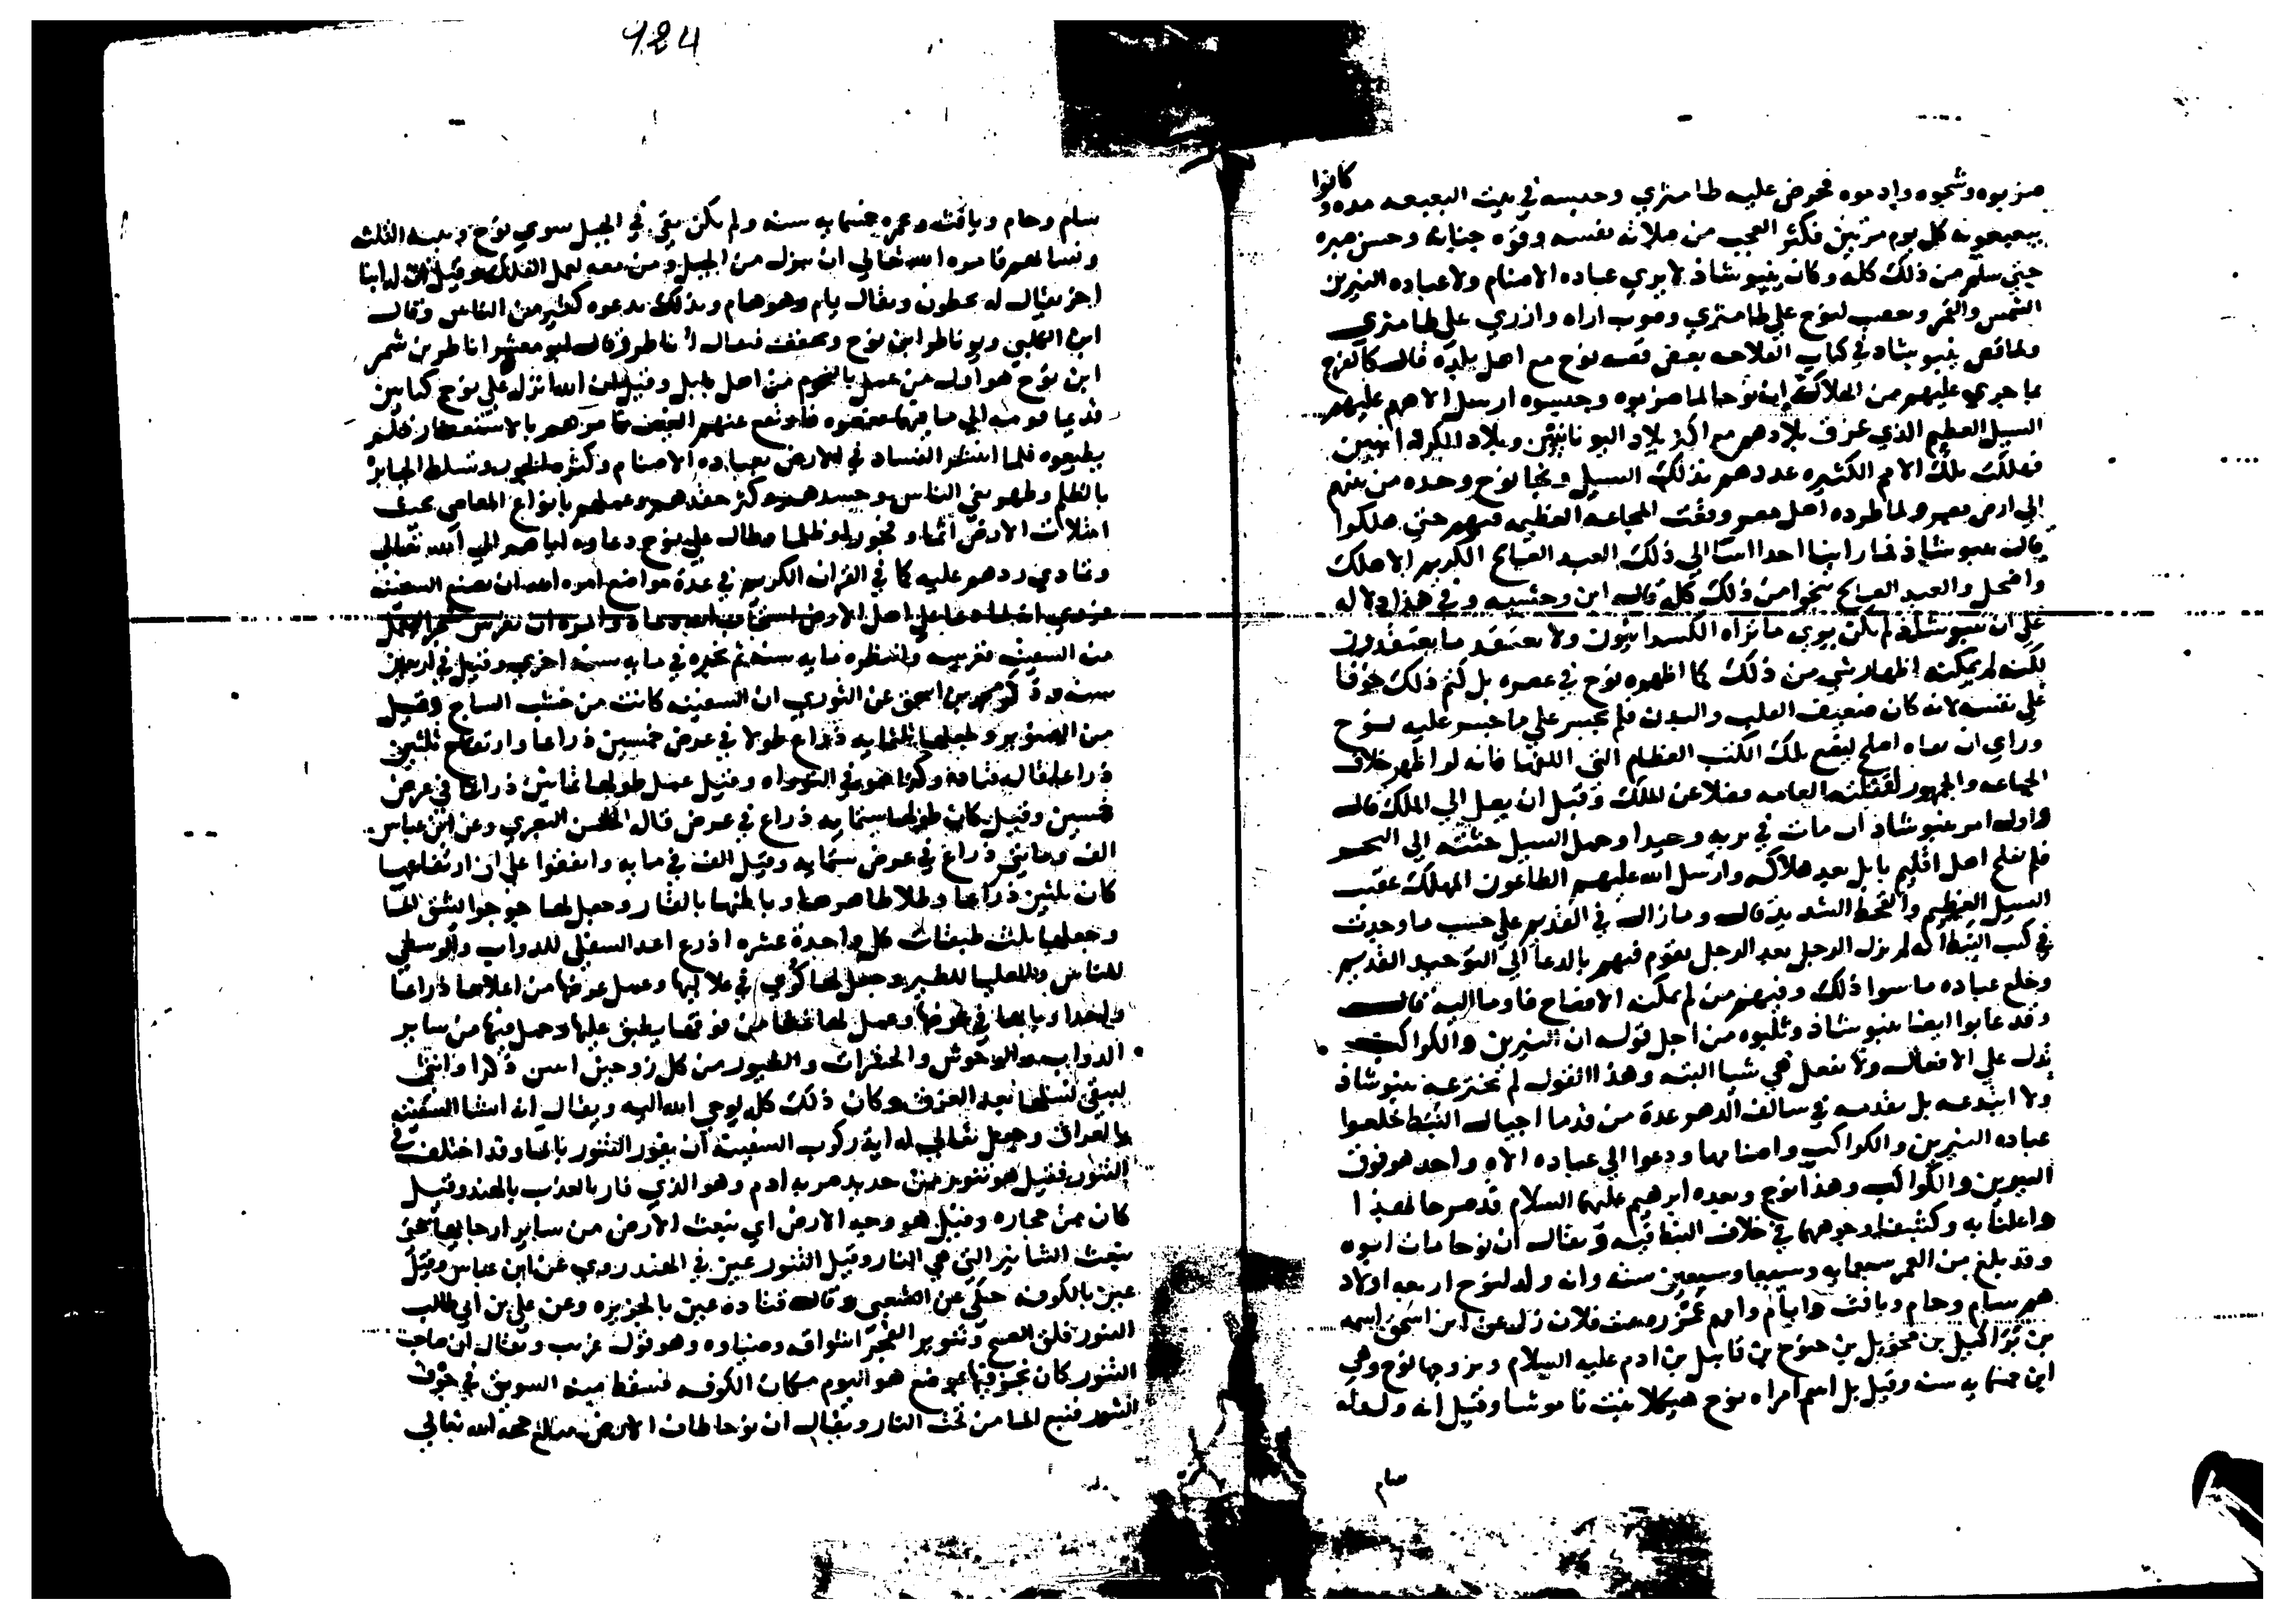 كانوا
ضربوه وشجوه وادموه فحوض عليه طامثري وحبسه في بيت البعبعه مده و
يبعبعونه كل يوم مرتين فكثر العجب من صلابة نفسه وقوه جنانه وحسن صبره
حتي سلم من ذلك كله وكان ينبوشاذ لا يري عباده الاصنام ولا عباده النيرين
الشمس والقمر وتعصب لنوح علي طامثري وصوب اراه وازري علي طامثري
ولما قص ينبوشاذ في كتاب الفلاحه بعض قصه نوح مع اهل بلده قال كالفرح
بما جري عليهم من الهلاك ان نوحا لما ضربوه وحبسوه ارسل الاههم عليهم
السيل العظيم الذي غرق بلادهم مع اكثر بلاد اليونانيين وبلاد
فهلكت تلك الامم الكثيره عددهم بذلك السيل ونجا نوح وحده من بينهم
الي ارض مصر ولما طرده اهل مصر وقعت المجاعه العظيمه فيهم حتي هلكوا
قال ينبوشاذ فما راينا احدا اسا الي ذلك العبد الصالح الكريم الا هلك
واضمحل والعبد الصالح ينجوا من ذلك كله قال ابن وحشيه وفي هذا دلاله
علي ان ينبوشاذ لم يكن يري ما تراه الكسدانيون ولا يعتقد ما يعتقدون
لكنه لم يمكنه اظهار شي من ذلك كما اظهره نوح في عصره بل كتم ذلك خوفا
علي نفسه لانه كان ضعيف القلب والبدن فلم يجسر علي ما جسر عليه نوح
وراي ان بقاه اصلح ليضع تلك الكتب العظام التي الفها فانه لو اظهر خلاف
الجماعه والجمهور لقتلته العامه فضلا عن الملك وقبل ان يصل الي الملك قال
واول امر ينبوشاذ ان مات في بريه وحيدا وحمل السيل جثته الي البحر
فلم يفلح اهل اقليم بابل بعد هلاكه وارسل الله عليهم الطاعون المهلك عقب
السيل العظيم والقحط الشديد قال وما زال في القديم علي حسب ما وجدت
في كتب النبط انه لم يزل الرجل بعد الرجل يقوم فيهم بالدعا الي التوحيد القديم
وخلع عباده ما سوا ذلك وفيهم من لم يمكنه الافصاح فاوما اليه قال
وقد عابوا ايضا ينبوشاذ وثلبوه من اجل قوله ان النيرين والكواكب
تدل علي الافعال ولا تفعل هي شيا البته وهذا القول لم يخترعه ينبوشاذ
ولا ابتدعه بل تقدمه في سالف الدهر عدة من قدما اجيال النبط خلعوا
عباده النيرين والكواكب واصنامها ودعوا الي عباده الاه واحد هو فوق
النيرين والكواكب وهذا نوح وبعده ابرهيم عليهما السلام قد صرحا لهذا
واعلنا به وكشفا وجوههما في خلاف ويقال ان نوحا مات ابوه
وقد بلغ من العمر سبعمايه وسبعا وسبعين سنه وانه ولد لنوح اربعه اولاد
هم سام وحام ويافث وايام وامهم
بن محويل بن حنوخ بن قابيل بن ادم عليه السلام وتزوجها نوح وهو
ابن خمسمايه سنه وقيل بل اسم امراه نوح هيكلا بنت ناموشا وقيل انه ولد له
سام
سام وحام ويافث وعمره خمسمايه سنه ولم يكن بقي في الجبل سوي نوح وبنيه الثلث
ونسايهم فامره الله تعالي ان ينزل من الجبل ومن معه لعمل الفلك وقيل ان له ابنا
اخر يقال له يحطون ويقال يام وهو هام وبذلك يدعوه كثير من الناس وقال
ابن الكلبي وبوناطر ابن نوح ويخفف فيقال اناطر وقال ابو معشر اناطر بن شمر
ابن نوح هو اول من عمل بالنجوم من اهل بابل وقيل ان الله انزل علي نوح كتابين
فدعا قومه الي ما فيهما فعصوه فارتفع عنهم الغيث فامرهم بالاستغفار فلم
يطيعوه فلما انتشر الفساد في الارض بعباده الاصنام وكثر وتسلط الجبابر
بالظلم وظهر بغي الناس وحسدهم وكثر حقدهم وعملهم بانواع المعاصي حتي
امتلات الارض اثما وفجورا وظلما وطال علي نوح دعاوه اياهم الي الله تعالي
وتمادي ردهم عليه كما في القران الكريم في عدة مواضع امره الله ان يصنع السفينه
من السفينه فغرسه وانتظره مايه سنه ثم نجره في مايه سنه اخري وقيل في اربعين
سنه وذكر محمد بن اسحق عن الثوري ان السفينه كانت من خشب الساج وقيل
من الصنوبر وجعلها ثلثمايه ذراع طولا في عرض خمسين ذراعا وارتفاع ثلثين
ذراعا قاله قتادة وكذا هو في التوراه وقيل عمل طولها ثمانين ذراعا في عرض
خمسين وقيل كان طولها ستمايه ذراع في عرض قال الحسن البصري وعن ابن عباس
الف ومايتي ذراع في عرض ستمايه وقيل الف في مايه واتفقوا علي ان ارتفاعها
كان ثلثين ذراعا وطلا ظاهرها وباطنها بالقار وجعل لها جوجوا لشق الما
وجعلها ثلث طبقات كل واحدة عشره اذرع اعد السفلي للدواب والوسطي
للناس والعليا للطير وجعل لها كوي في علاليها وعمل عرضها من اعلاها ذراعا
واحدا وبابها في عرضها وعمل لها غطا من فوقها يطبق عليها وحمل فيها من ساير
الدواب والوحوش والحشرات والطيور من كل زوجين اثنين ذكرا وانثي
ليبقي نسلها بعد الغرق وكان ذلك كله بوحي الله اليه ويقال انه انشا السفينه
بالعراق وجعل تعالي له اية ركوب السفينة ان يفور التنور بالما وقد اختلف في
التنور فقيل هو تنور من حديد صربه ادم وهو الذي فار بالعذب بالهند وقيل
كان من حجاره وقيل هو وجه الارض اي نبعت الارض من ساير ارجايها حتي
نبعت التنانير التي هي النار وقيل التنور عين في الهند روي عن ابن عباس وقيل
عين بالكوفه حكي عن الشعبي وقال قتاده عين بالجزيره وعن علي بن ابي طالب
التنور فلق الصبح وتنوير الفجر اشراقه وضياوه وهو قول غريب ويقال ان صاحب
التنور كان يخبز فيها بموضع هو اليوم مكان الكوفه فسقط منه السويق في جوف
التنور فنبع الما من تحت النار ويقال ان نوحا طاف الارض مبلغ حجه الله تعالي